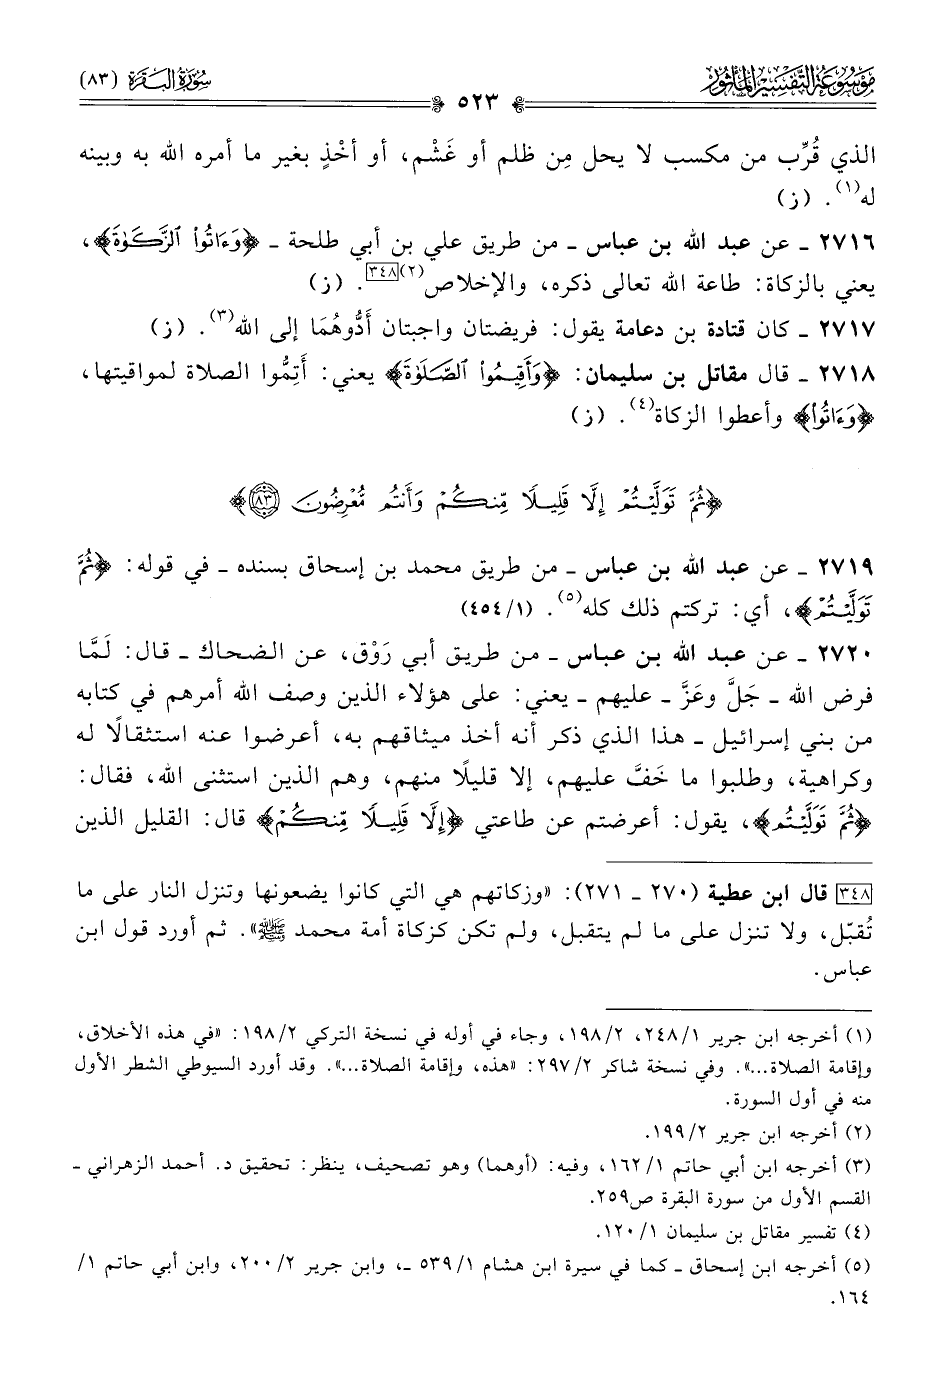 مَوْسُوعَةُ التَّفْسِيرِ المَأْثُورِ
سُورَةُ البَقَرَة (٨٣)
٥٢٣
الذي قُرِّب من مكسب لا يحل مِن ظلم أو غَشْم، أو أخْذٍ بغير ما أمره الله به وبينه
له(١). (ز)
٢٧١٦ ـ عن عبد الله بن عباس ـ من طريق علي بن أبي طلحة ـ ﴿وَءَاتُواْ ٱلزَّكَوٰةَ﴾،
يعني بالزكاة: طاعة الله تعالى ذكره، والإخلاص(٢)[٣٤٨]. (ز)
٢٧١٧ ـ كان قتادة بن دعامة يقول: فريضتان واجبتان أَدُّوهُمَا إلى الله(٣). (ز)
٢٧١٨ ـ قال مقاتل بن سليمان: ﴿وَأَقِيمُواْ ٱلصَّلَوٰةَ﴾ يعني: أَتِمُّوا الصلاة لمواقيتها،
﴿وَءَاتُواْ﴾ وأعطوا الزكاة(٤). (ز)
﴿ثُمَّ تَوَلَّيْتُمْ إِلَّا قَلِيلًا مِّنكُمْ وَأَنتُم مُّعْرِضُونَ ٨٣﴾
٢٧١٩ ـ عن عبد الله بن عباس ـ من طريق محمد بن إسحاق بسنده ـ في قوله: ﴿ثُمَّ
تَوَلَّيْتُمْ﴾، أي: تركتم ذلك كله(٥). (١/ ٤٥٤)
٢٧٢٠ ـ عن عبد الله بن عباس ـ من طريق أبي رَوْق، عن الضحاك ـ قال: لَمَّا
فرض الله ـ جَلَّ وعَزَّ ـ عليهم ـ يعني: على هؤلاء الذين وصف الله أمرهم في كتابه
من بني إسرائيل ـ هذا الذي ذكر أنه أخذ ميثاقهم به، أعرضوا عنه استثقالًا له
وكراهية، وطلبوا ما خَفَّ عليهم، إلا قليلًا منهم، وهم الذين استثنى الله، فقال:
﴿ثُمَّ تَوَلَّيْتُمْ﴾، يقول: أعرضتم عن طاعتي ﴿إِلَّا قَلِيلًا مِّنكُمْ﴾ قال: القليل الذين
[٣٤٨] قال ابن عطية (٢٧٠ ـ ٢٧١): «وزكاتهم هي التي كانوا يضعونها وتنزل النار على ما
تُقبّل، ولا تنزل على ما لم يتقبل، ولم تكن كزكاة أمة محمد ﷺ». ثم أورد قول ابن
عباس.
(١) أخرجه ابن جرير ١/ ٢٤٨، ٢/ ١٩٨، وجاء في أوله في نسخة التركي ٢/ ١٩٨: «في هذه الأخلاق،
وإقامة الصلاة...». وفي نسخة شاكر ٢/ ٢٩٧: «هذه، وإقامة الصلاة...». وقد أورد السيوطي الشطر الأول
منه في أول السورة.
(٢) أخرجه ابن جرير ٢/ ١٩٩.
(٣) أخرجه ابن أبي حاتم ١/ ١٦٢، وفيه: (أوهما) وهو تصحيف، ينظر: تحقيق د. أحمد الزهراني ـ
القسم الأول من سورة البقرة ص٢٥٩.
(٤) تفسير مقاتل بن سليمان ١/ ١٢٠.
(٥) أخرجه ابن إسحاق ـ كما في سيرة ابن هشام ١/ ٥٣٩ ـ، وابن جرير ٢/ ٢٠٠، وابن أبي حاتم ١/
١٦٤.